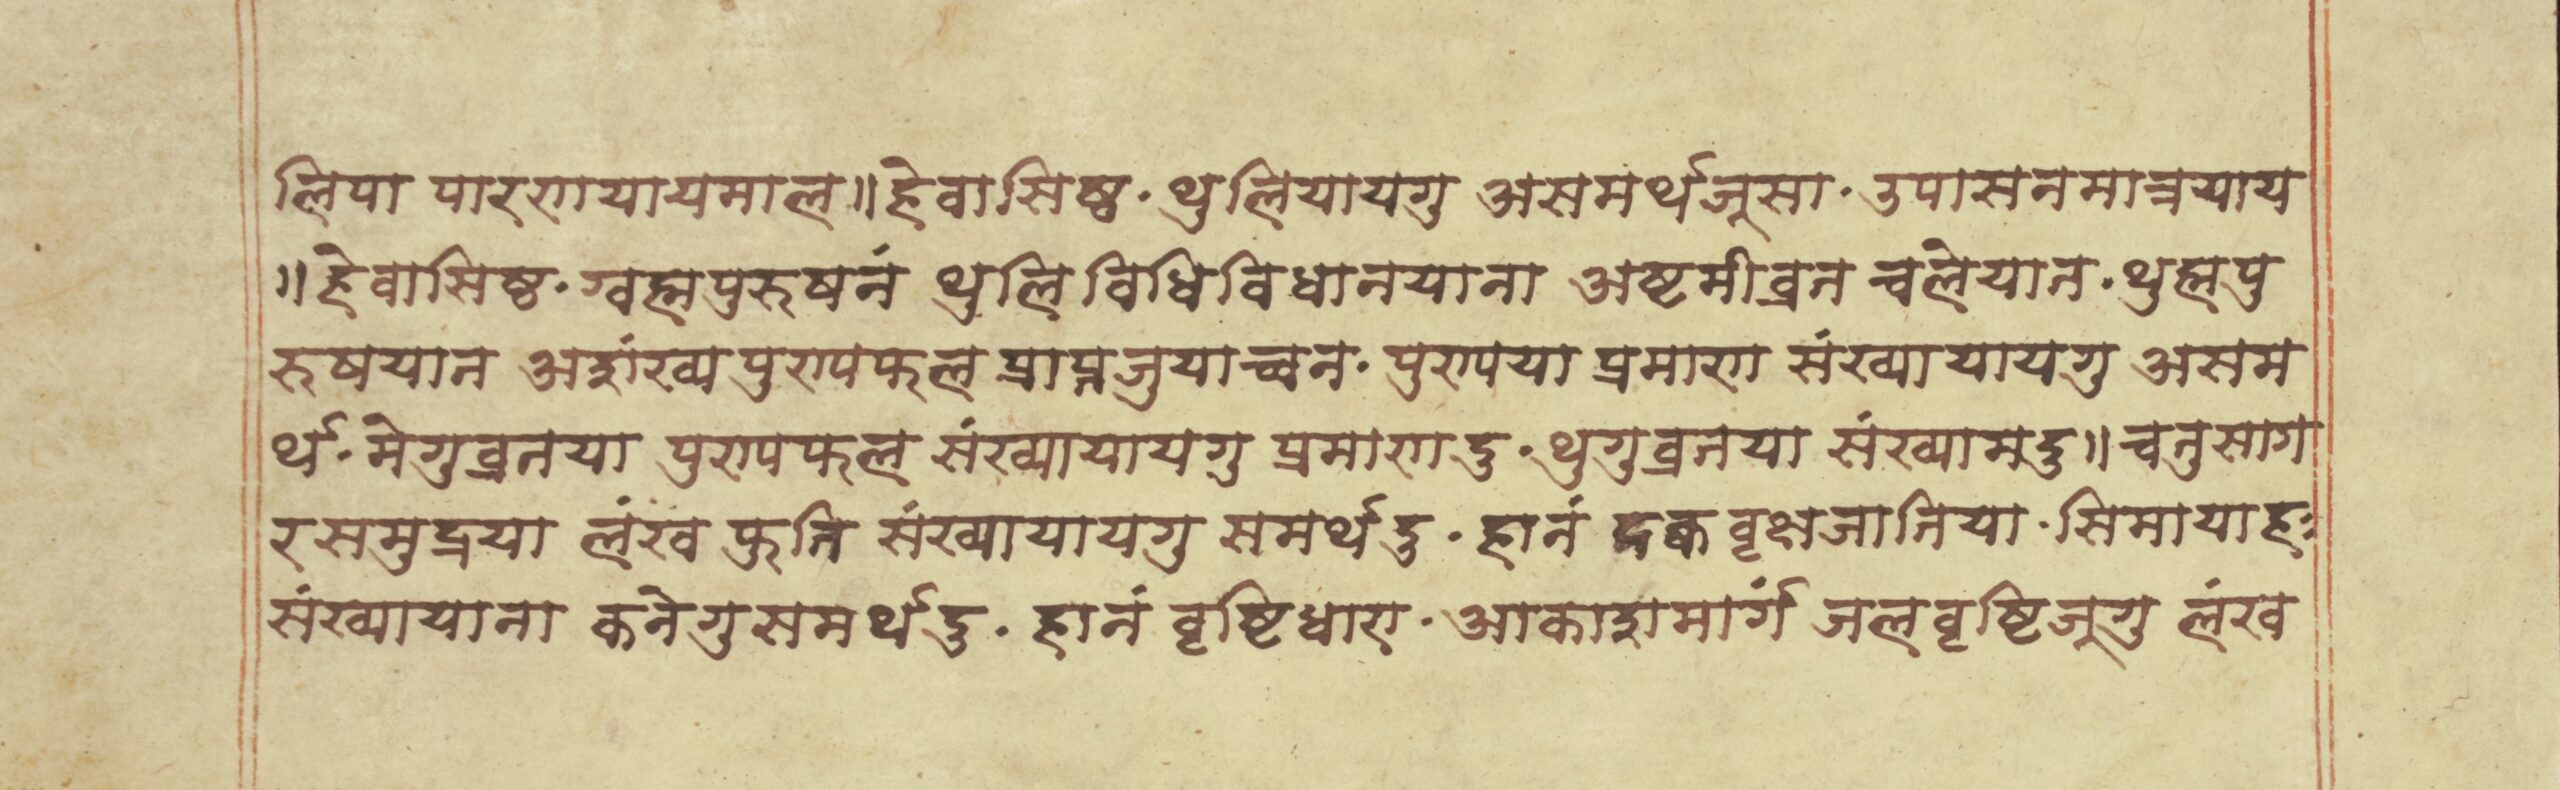 लिपा पारणायायमाल॥हेवासिष्ठ·थुलियायगु असमर्थजूसा·उपासनमात्रयाय
॥हेवासिष्ठ·ग्वह्मपुरुषनं थुलि विधिविधानयाना अष्टमीव्रत चलेयात·थुह्मपु
रुषयात असंख्य पुण्यफल प्राप्तजुयाच्वन·पुण्यया प्रमाण संख्यायायगु असम
र्थ·मेगुव्रतया पुण्यफल संख्यायायगु प्रमाणदु·थुगुव्रतया संख्यामदु॥चतुसाग
रसमुद्रया लंख फुति संख्यायायगु समर्थदु·हानं दक्व वृक्षजातिया·सिमायाहः
संख्यायाना कनेगुसमर्थदु·हानं वृष्टिधारा·आकाशमार्गं जलवृष्टिजूगु लंख